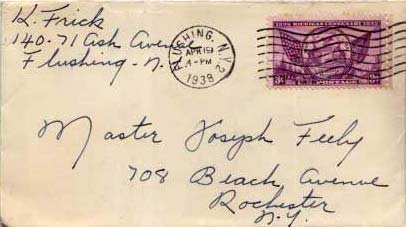 K. Frick
140-71 Ash Avenue
Flushing - N.Y.
FLUSHING, N.Y. 2
APR 19
4-PM
1938
1835 MICHIGAN CENTENARY 1935
3¢ 3¢
U.S. POSTAGE
Master Joseph Feely
708 Beach Avenue
Rochester
N.Y.